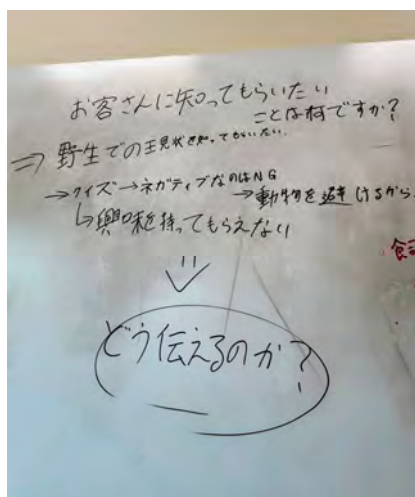 お客さんに知ってもらいたい
ことは何ですか?
⇒ 野生での現状を知ってもらいたい.
→クイズ→ネガティブなのはNG
→動物を避けるから.
↳興味を持ってもらえない
どう伝えるのか?